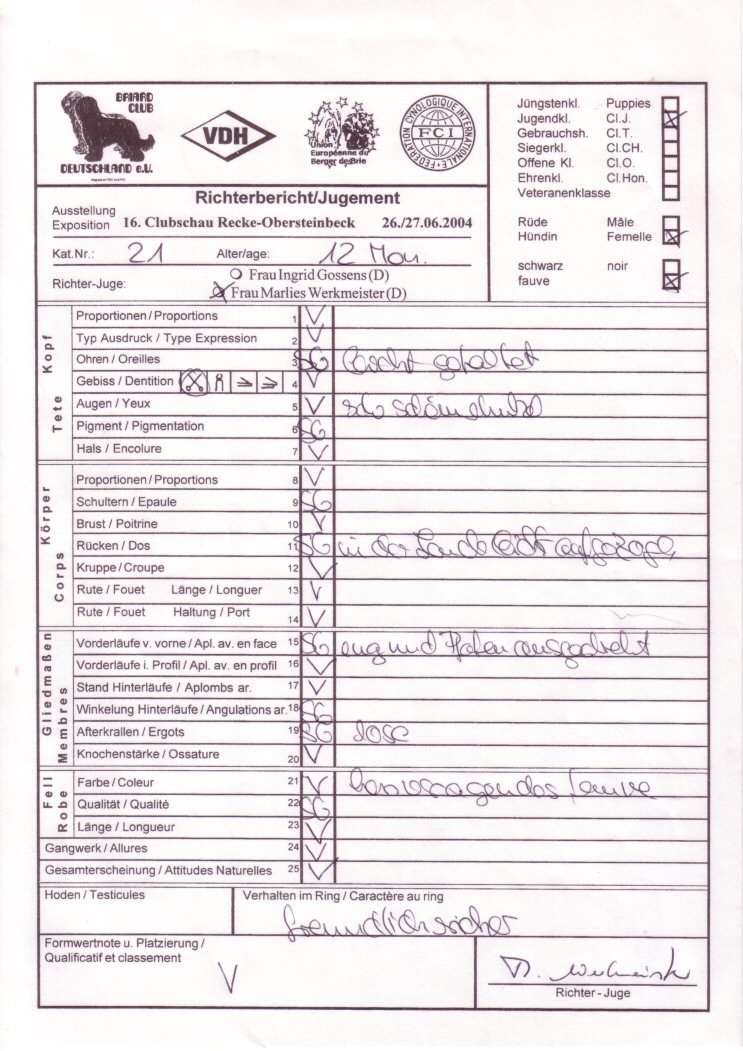 BRIARD
CLUB
DEUTSCHLAND e.V.
VDH
Union
Européenne du
Berger de Brie
FEDERATION CYNOLOGIQUE INTERNATIONALE
FCI
Jüngstenkl. Puppies
Jugendkl. Cl.J.
Gebrauchsh. Cl.T.
Siegerkl. Cl.CH.
Offene Kl. Cl.O.
Ehrenkl. Cl.Hon.
Veteranenklasse
Rüde Mâle
Hündin Femelle
schwarz noir
fauve
Richterbericht/Jugement
Ausstellung
Exposition 16. Clubschau Recke-Obersteinbeck 26./27.06.2004
Kat.Nr.: 21 Alter/age: 12 Mon.
Richter-Juge: Frau Ingrid Gossens (D)
Frau Marlies Werkmeister (D)
Kopf
Tete
Proportionen / Proportions 1 V
Typ Ausdruck / Type Expression 2 V
Ohren / Oreilles 3 SG leicht gefaltet
Gebiss / Dentition 4 V
Augen / Yeux 5 V
Pigment / Pigmentation 6 SG
Hals / Encolure 7 V
Körper
Corps
Proportionen / Proportions 8 V
Schultern / Epaule 9 SG
Brust / Poitrine 10 V
Rücken / Dos 11 SG in der Lende leicht aufgezogen
Kruppe / Croupe 12 V
Rute / Fouet Länge / Longuer 13 V
Rute / Fouet Haltung / Port 14 V
Gliedmaßen
Membres
Vorderläufe v. vorne / Apl. av. en face 15 SG eng und Pfoten ausgedreht
Vorderläufe i. Profil / Apl. av. en profil 16 V
Stand Hinterläufe / Aplombs ar. 17 V
Winkelung Hinterläufe / Angulations ar. 18 SG
Afterkrallen / Ergots 19 SG lose
Knochenstärke / Ossature 20 V
Fell
Robe
Farbe / Coleur 21 V hervorragendes fauve
Qualität / Qualité 22 SG
Länge / Longueur 23 V
Gangwerk / Allures 24 V
Gesamterscheinung / Attitudes Naturelles 25 V
Hoden / Testicules
Verhalten im Ring / Caractère au ring
freundlich sicher
Formwertnote u. Platzierung /
Qualificatif et classement
V
M. Werkmeister
Richter - Juge